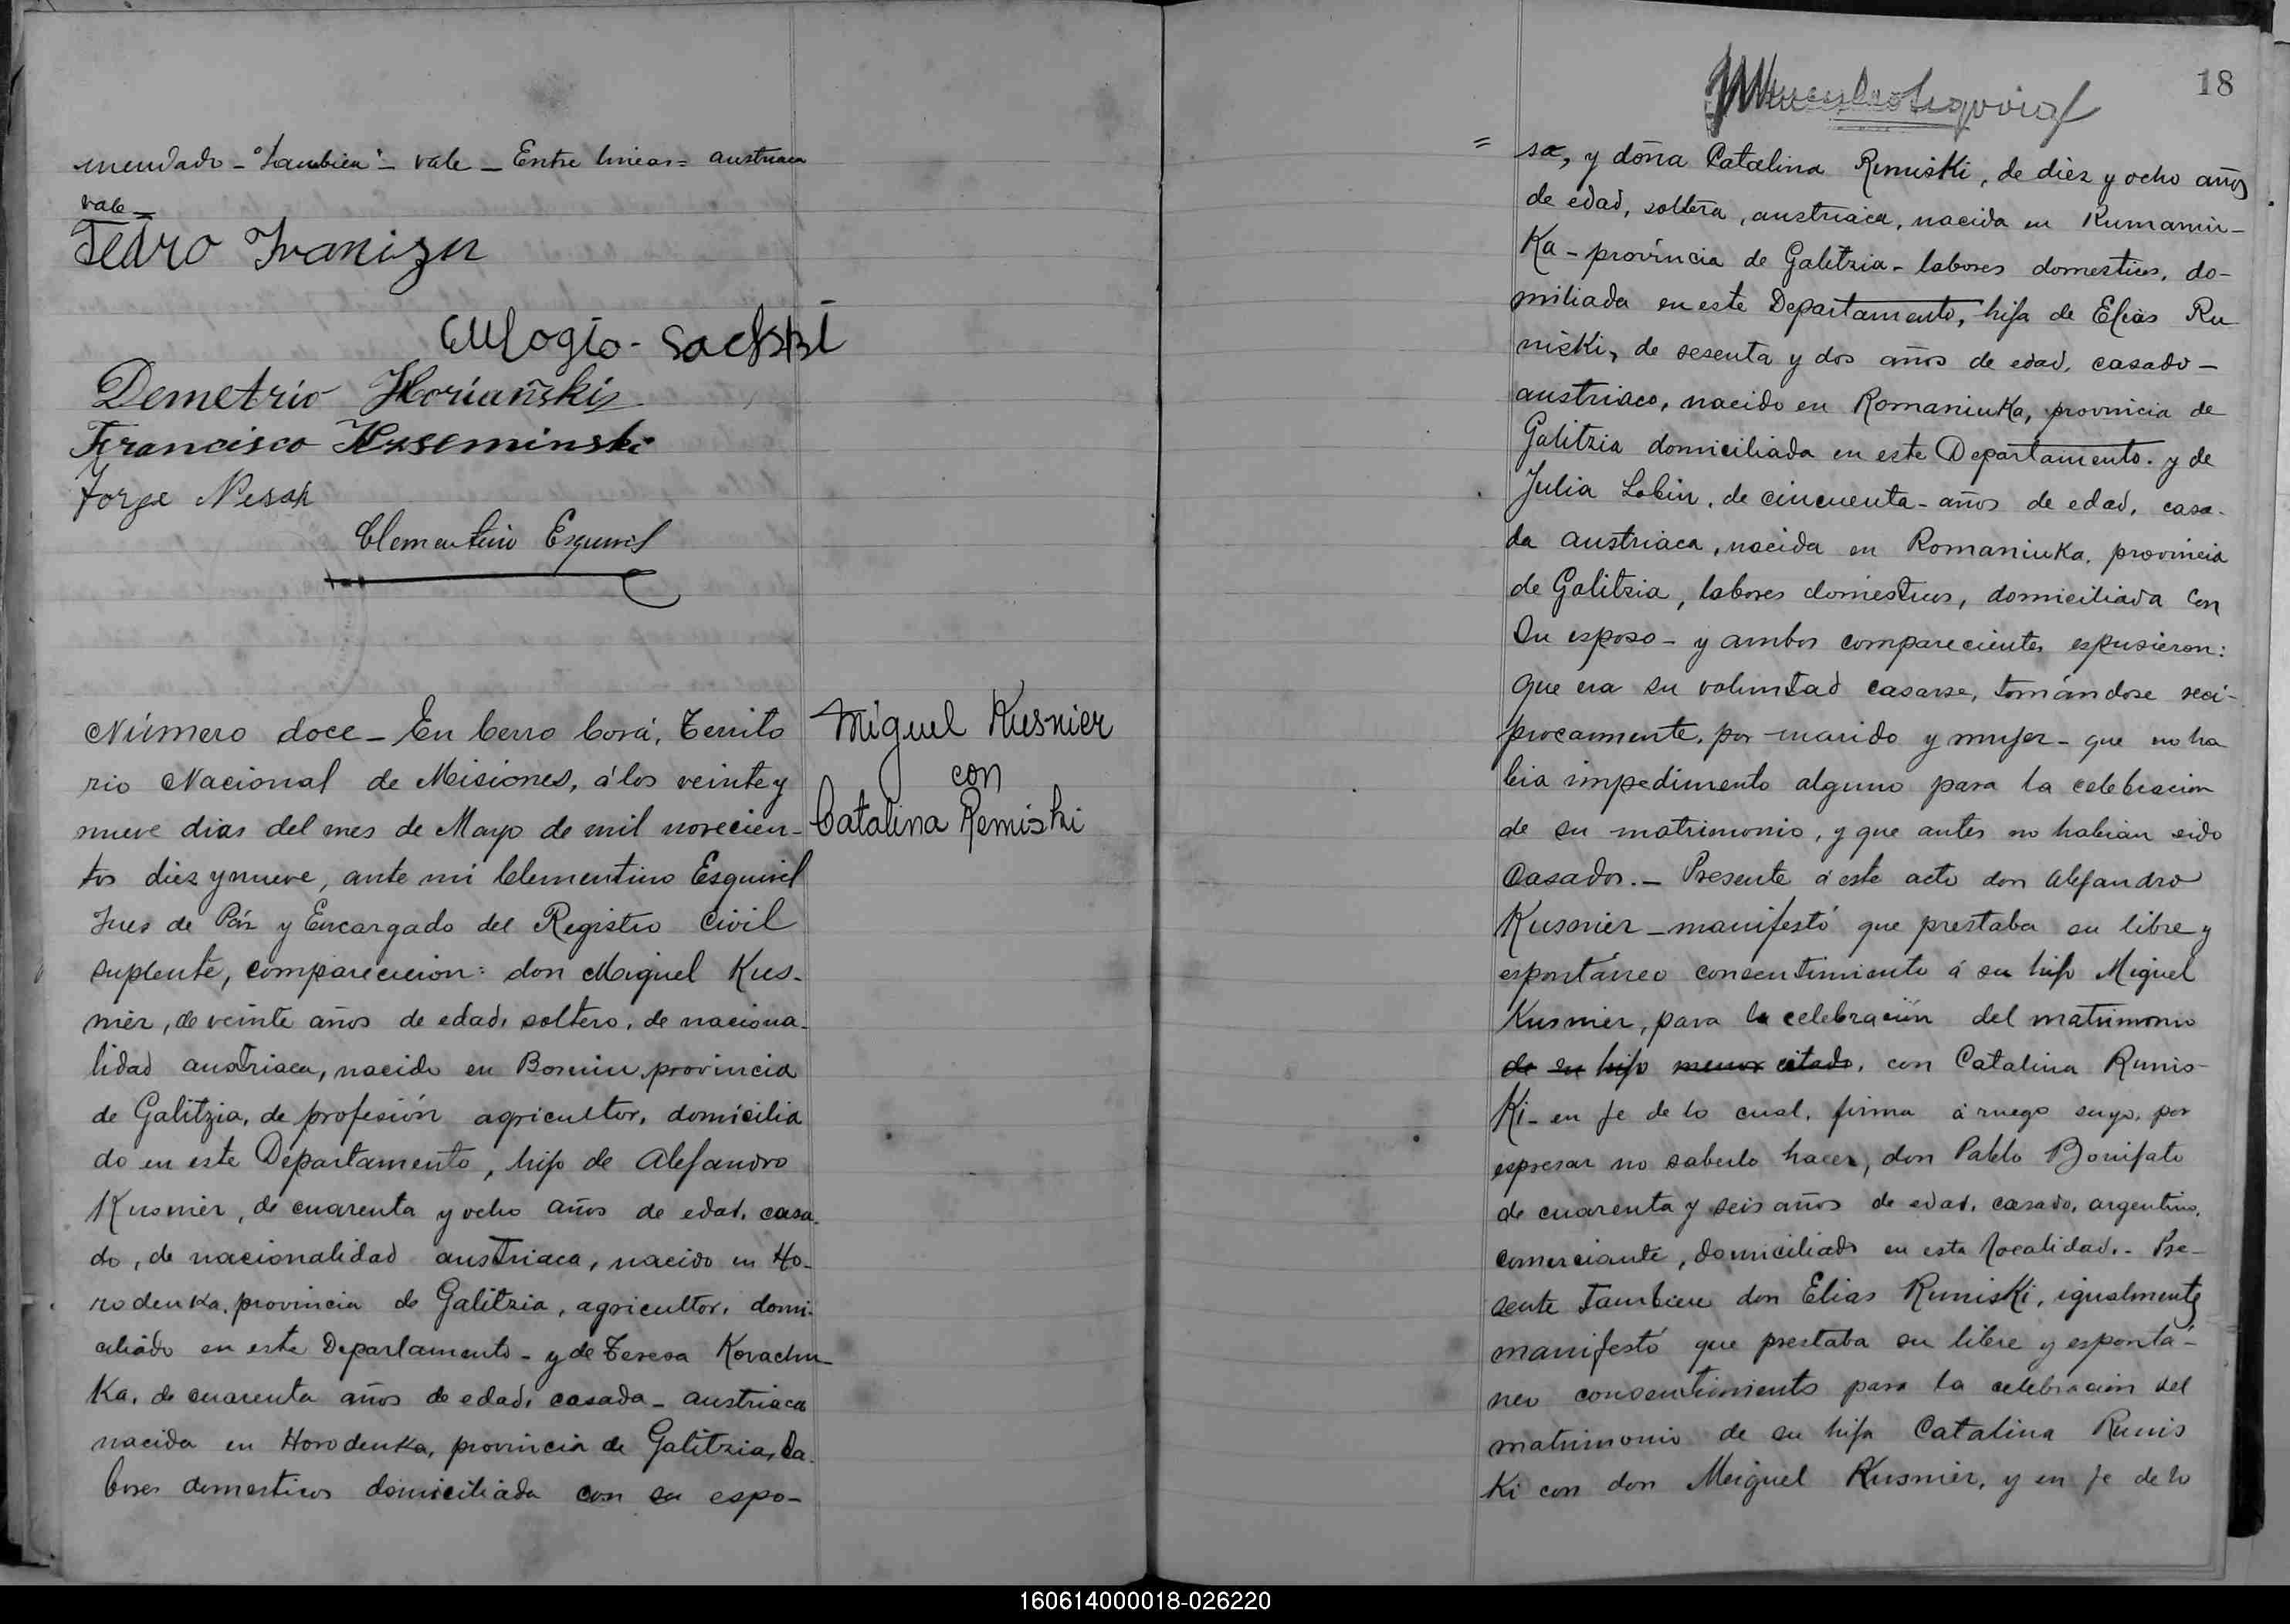 mendado - "tambien" - vale - Entre lineas = austriaca
vale -
Pedro Ivanizn
Eulogio - Sachski
Demetrio Horiañski
Francisco
Jorge Nesch
Clementino Esquivel
Número doce - En Cerro Corá, Territo
rio Nacional de Misiones, á los veinte y
nueve dias del mes de Mayo de mil novecien-
tos diez y nueve, ante mi Clementino Esquivel
Jues de Páz y Encargado del Registro Civil
suplente, comparecieron: don Miguel Kus-
nier, de veinte años de edad, soltero, de naciona-
lidad austriaca, nacido en provincia
de Galitzia, de profesión agricultor, domicilia
do en este Departamento, hijo de Alejandro
Kusnier, de cuarenta y ocho años de edad, casa-
do, de nacionalidad austriaca, nacido en Ho-
rodenka, provincia de Galitzia, agricultor, domi-
ciliado en este Departamento - y de Teresa Korachu-
Ka, de cuarenta años de edad, casada - austriaca
nacida en Horodenka, provincia de Galitzia, la-
bores domesticos domiciliada con su espo-
Miguel Kusnier
con
Catalina Remiski
18
= so, y doña Catalina Remiski, de diez y ocho años
de edad, soltera, austriaca, nacida en Rumaniu-
Ka - provincia de Galitzia - labores domesticos, do-
miliada en este Departamento, hija de Elias Ru
niski, de sesenta y dos años de edad, casado -
austriaco, nacido en Romaniuka, provincia de
Galitzia domiciliada en este Departamento. y de
Julia Lobin, de cincuenta - años de edad, casa-
da austriaca, nacida en Romaniuka, provincia
de Galitzia, labores domesticos, domiciliada con
su esposo - y ambos comparecientes espusieron:
Que era su voluntad casarse, tomándose reci-
procamente, por marido y mujer - que no ha
bia impedimento alguno para la celebracion
de su matrimonio, y que antes no habian sido
Casados. - Presente á este acto don Alejandro
Kusnier - manifestó que prestaba su libre y
espontáneo consentimiento á su hijo Miguel
Kusnier, para la celebración del matrimonio
de su hijo menor citado, con Catalina Runis-
Ki - en fe de lo cual, firma á ruego suyo, por
espresar no saberlo hacer, don Pablo Bonifato
de cuarenta y seis años de edad, casado, argentino,
comerciante, domiciliado en esta localidad. - Pre-
sente tambien don Elias Runiski, igualmente
manifestó que prestaba su libre y espontá-
neo consentimiento para la celebracion del
matrimonio de su hija Catalina Runis
Ki con don Miguel Kusnier, y en fe de lo
160614000018-026220